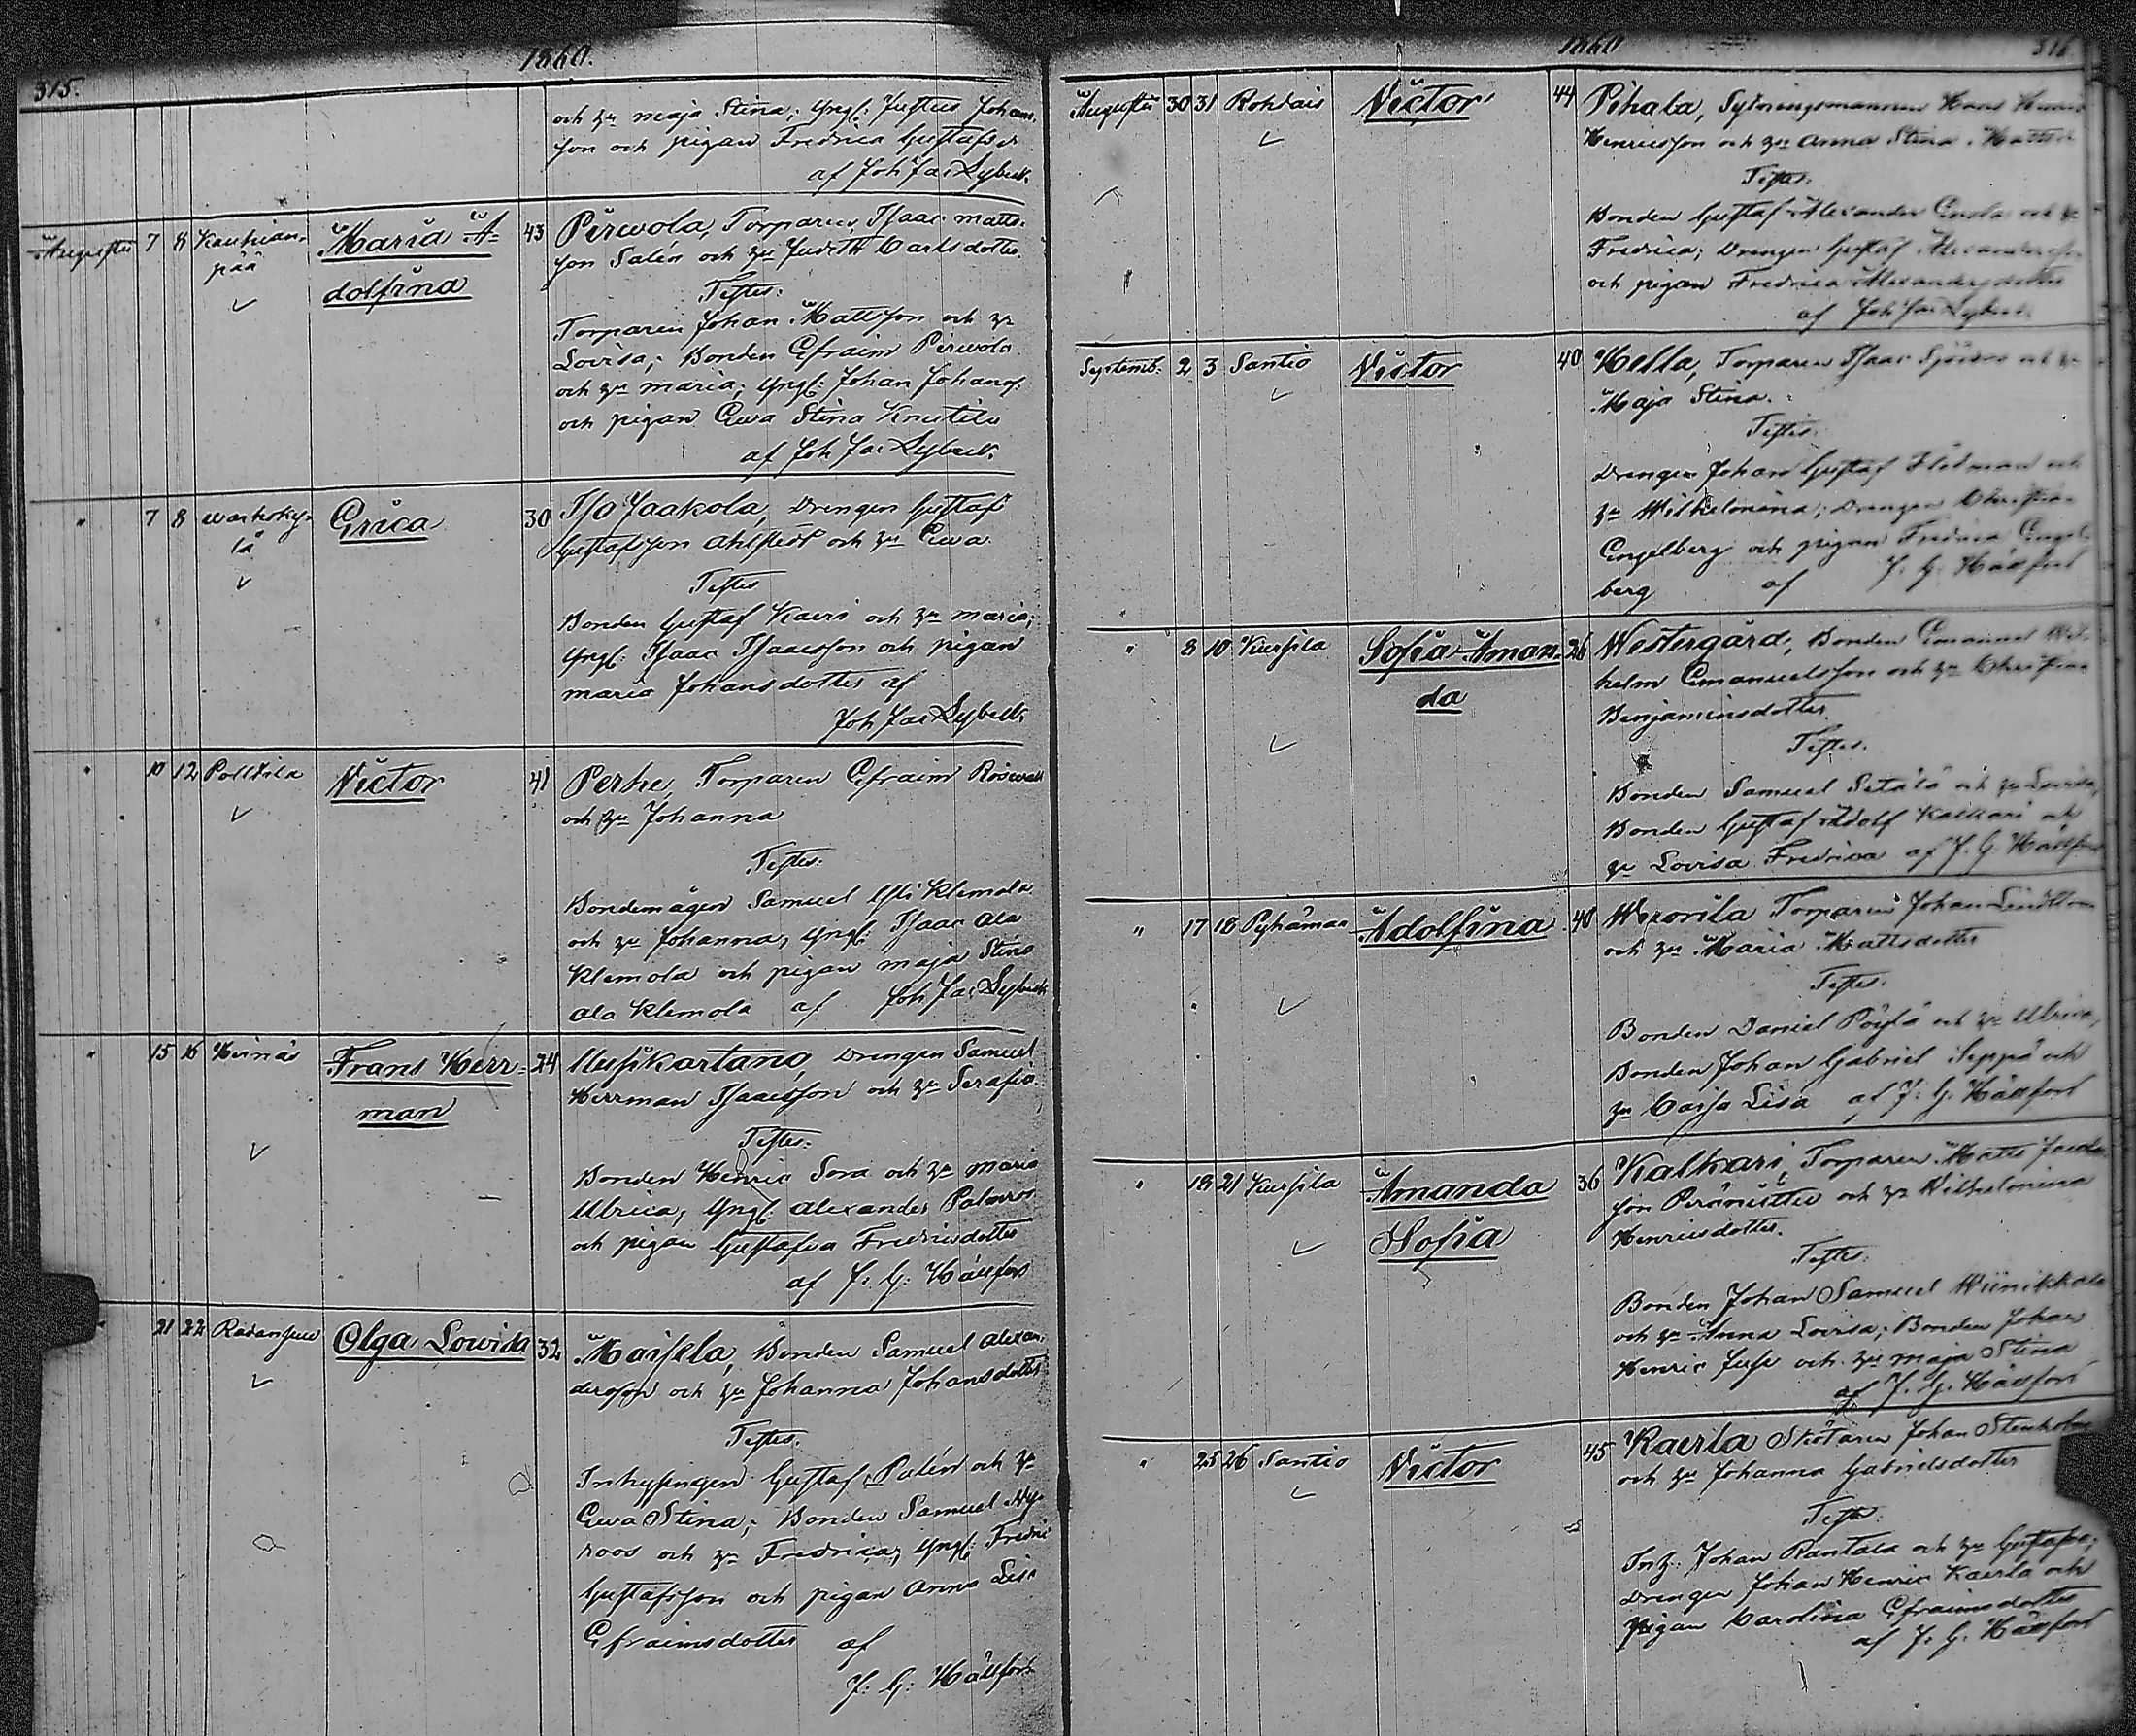 315.
1860.
och hu maja Stina; Yngl: Justus Johans-
son och pigan Fredrica Gustafsdr
af Joh Jac Lybeck.
Augusti 7 8 Kauhian-
pää
Maria A-
dolfina
43 Pirwola, Torparen Isaac Matts-
son Salén och hu Judith Carlsdotter
Testes:
Torparen Johan Mattsson och hu
Lovisa; Bonden Efraim Perwola
och hu maria; Yngl: Johan Johans:
och pigan Ewa Stina Knutila
af Joh Jac Lybeck.
" 7 8 warhoky-
lä
Erica
30 Iso Jaakola, Drengen Gustaf
Gustafsson Ahlstedt och hu Ewa
Testes
Bonden Gustaf Kauri och hu maria;
Yngl: Isaac Isaacsson och pigan
maria Johansdotter af
Joh Jac Lybeck
" 10 12 Polttila
Victor
41 Perhe, Torparen Efraim Roswall
och hu Johanna
Testes:
Bondemågen Samuel Yli Klemola
och hu Johanna; Yngl: Isaac Ala
Klemola och pigan maja Stina
Ala Klemola af Joh Jac Lybeck
" 15 16 Heinäs
Frans Herr-
man
24 Uusikartano, Drengen Samuel
Herrman Isaacsson och hu Serafia.
Testes:
Bonden Henric Sora och hu maria
Ulrica, Yngl: Alexander Palmros
och pigan Gustafva Fredricsdotter
af J: G: Hällfors
21 22 Radansuu
Olga Lowisa
32 Maisela, Bonden Samuel Alexan-
dersson och hu Johanna Johansdotter
Testes.
Inhysingen Gustaf Palén och hu
Ewa Stina; Bonden Samuel Ny-
roos och hu Fredrica; Yngl: Fredric
Gustafsson och pigan Anna Lisa
Efraimsdotter af
J: G: Hällfors
1860
316
Augusti 30 31 Rohdais
Victor
44 Pihala, Sytningsmannen Hans
Henricsson och hu Anna Stina
Testes.
Bonden Gustaf Alexander och hu
Fredrica; Drengen Gustaf Alexandersson
och pigan Fredrica Alexandersdotter
af Joh Jac Lybeck
Septemb: 2 3 Santio
Victor
40 Hella, Torparen Isaac och hu
Maja Stina.
Testes.
Drengen Johan Gustaf och
hu Wilhelmina; Drengen Christian
Engelberg och pigan Fredrica Engel-
berg af J. G. Hällfors
" 8 10 Kursila
Sofia Aman-
da
26 Westergård, Bonden Emanuel Wil-
helm Emanuelsson och hu Christina
Benjaminsdotter.
Testes.
Bonden Samuel Setälä och hu Lovisa,
Bonden Gustaf Adolf Kalkari och
hu Lovisa Fredrica af J. G. Hällfors
" 17 18 Pyhämaa
Adolfina
40 Torparen Johan Lindblom
och hu Maria Mattsdotter
Testes.
Bonden Daniel Pöylä och hu Ulrica,
Bonden Johan Gabriel Seppä och
hu Caisa Lisa af J: G. Hällfors
" 19 21 Kursila
Amanda
Sofia
36 Kalkari, Torparen Matts
son och hu Wilhelmina
Henricsdotter.
Testes.
Bonden Johan Samuel Wiinikkala
och hu Anna Lovisa; Bonden Johan
Henric Juse och hu maja Stina
af J. G. Hällfors
" 25 26 Santio
Victor
45 Kaerla Skötaren Johan Stenholm
och hu Johanna Gabrielsdotter
Testes.
Inh: Johan Rantala och hu Gustafva;
Drengen Johan Henric Kaerla och
Pigan Carolina Efraimsdotter
af J: G. Hällfors